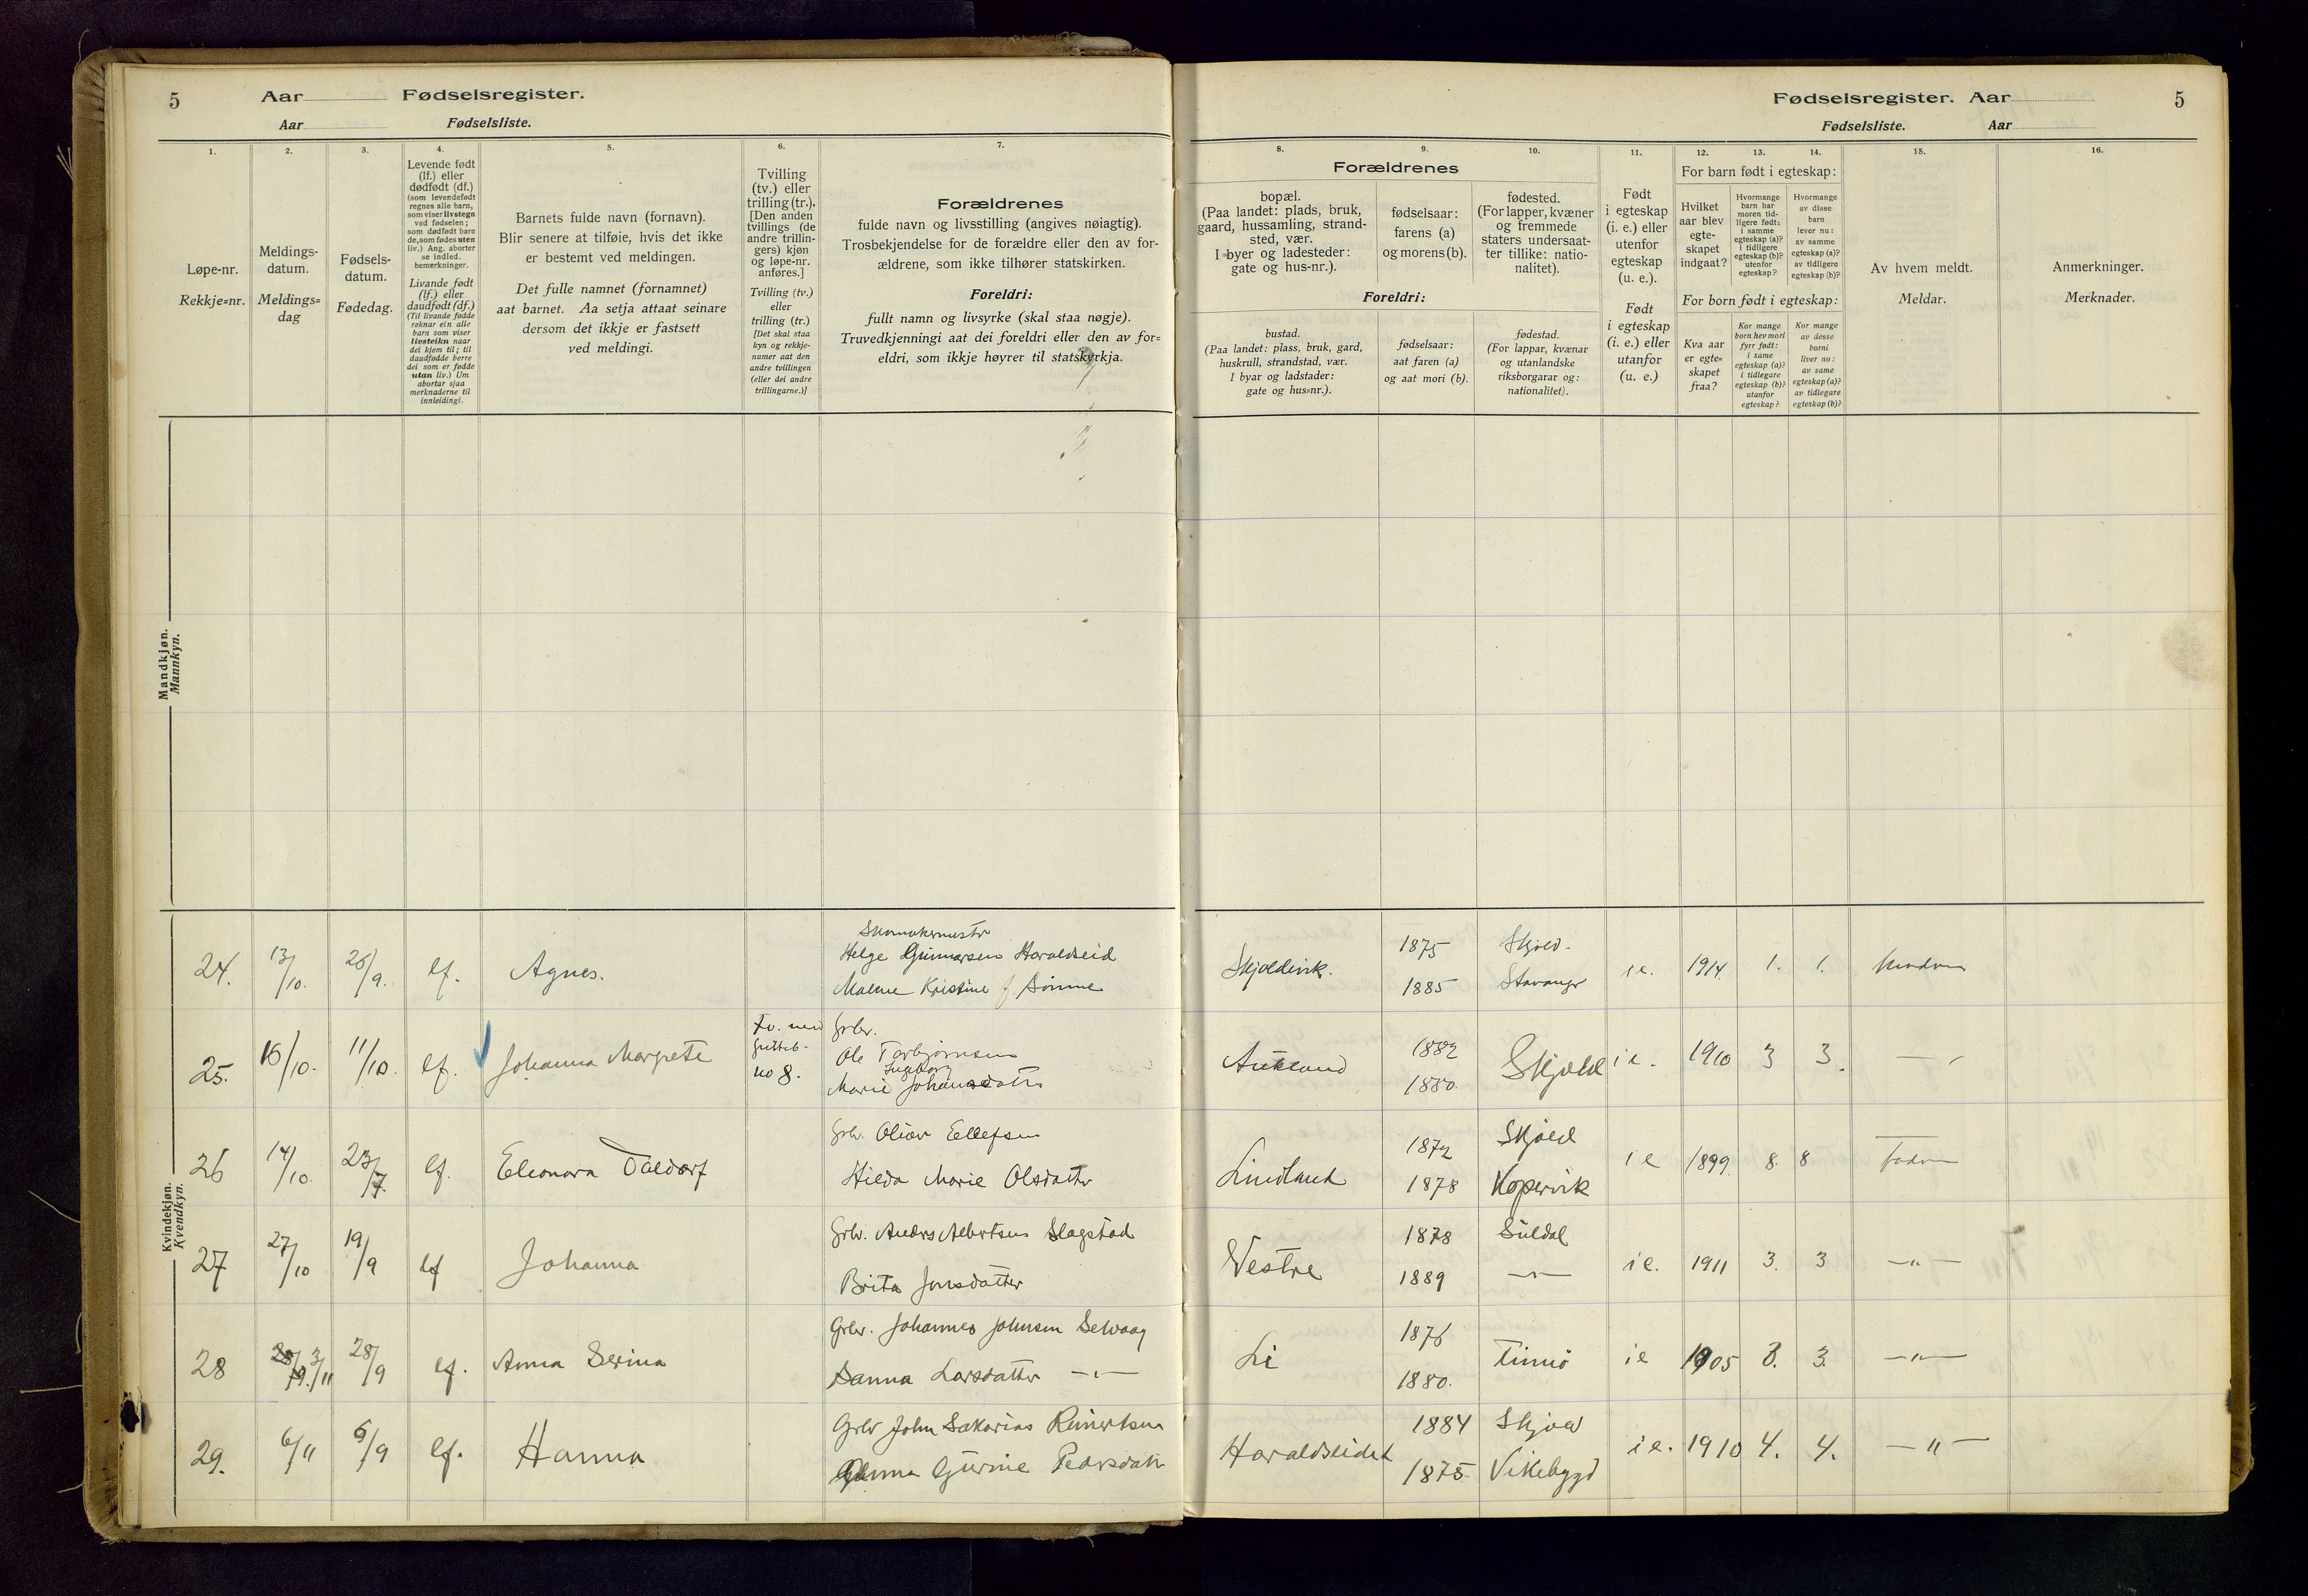 5 Aar Fødselsregister.
Aar Fødselsliste.
1.
Løpe-nr.
Rekkje=nr.
2.
Meldings-
datum.
Meldings=
dag
3.
Fødsels-
datum.
Fødedag.
4.
Levende født
(lf.) eller
dødfødt (df.)
(som levendefødt
regnes alle barn,
som viser livstegn
ved fødselen;
som dødfødt bare
de, som fødes uten
liv.) Ang. aborter
se indled.
bemerkninger.
Livande født
(lf.) eller
daudfødt (df.)
(Til livande fødde
reknar ein alle
born som viser
livsteikn naar
dei kjem til; til
daudfødde berre
dei som er fødde
utan liv.) Um
abortar sjaa
merknaderne til
innleidingi.
5.
Barnets fulde navn (fornavn).
Blir senere at tilføie, hvis det ikke
er bestemt ved meldingen.
Det fulle namnet (fornamnet)
aat barnet. Aa setja attaat seinare
dersom det ikkje er fastsett
ved meldingi.
6.
Tvilling
(tv.) eller
trilling (tr.).
[Den anden
tvillings (de
andre trillin-
gers) kjøn
og løpe-nr.
anføres.]
Tvilling (tv.)
eller
trilling (tr.)
[Det skal staa
kyn og rekkje-
numer aat den
andre tvillingen
(eller dei andre
trillingarne.)]
7.
Forældrenes
fulde navn og livsstilling (angives nøiagtig).
Trosbekjendelse for de forældre eller den av for-
ældrene, som ikke tilhører statskirken.
Foreldri:
fullt namn og livsyrke (skal staa nøgje).
Truvedkjenningi aat dei foreldri eller den av for=
eldri, som ikkje høyrer til statskyrkja.
Fødselsregister. Aar 5
Fødselsliste. Aar
Forældrenes
8.
bopæl.
(Paa landet: plads, bruk,
gaard, hussamling, strand-
sted, vær.
I byer og ladesteder:
gate og hus-nr.).
9.
fødselsaar:
farens (a)
og morens (b).
10.
fødested.
(For lapper, kvæner
og fremmede
staters undersaat-
ter tillike: natio-
nalitet).
Foreldri:
bustad.
(Paa landet: plass, bruk, gard,
huskrull, strandstad, vær.
I byar og ladstader:
gate og hus=nr.).
fødselsaar:
aat faren (a)
og aat mori (b).
fødestad.
(For lappar, kvænar
og utanlandske
riksborgarar og:
nationalitet).
11.
Født
i egteskap
(i. e.) eller
utenfor
egteskap
(u. e.).
Født
i egteskap
(i. e.) eller
utanfor
(u. e.)
12. 13. 14.
For barn født i egteskap:
Hvilket
aar blev
egte-
skapet
indgaat?
Hvormange
barn har
moren tid-
ligere født:
i samme
egteskap (a)?
i tidligere
egteskap (b)?
utenfor
egteskap?
Hvormange
av disse
barn
lever nu:
av samme
egteskap (a)?
av tidligere
egteskap (b)?
For born født i egteskap:
Kva aar
er egte=
skapet
fraa?
Kor mange
born hev mori
fyrr født:
i same
egteskap (a)?
i tidlegare
egteskap (b)?
utanfor
egteskap?
Kor mange
av desse
borni
liver no:
av same
egteskap (a)?
av tidlegare
egteskap (b)?
15.
Av hvem meldt.
Meldar.
16.
Anmerkninger.
Merknader.
Mandkjøn.
Mannkyn.
Kvindekjøn.
Kvendkyn.
24. 13/10. 26/9. lf. Agnes.
Skomakermestr
Helge Gunnarsen Haraldseid
Malene Kristine f. Sømme
Skjoldevik. 1875 Skjold.
1885 Stavanger
i e. 1914 1. 1.
25. 16/10. 11/10. lf. Johanna Margrete
Tv. med
gutteb.
no 8.
Grbr.
Ole Torbjørnsen
Ingeborg
Marie Johansdatter
1882
1880. Skjold i e. 1910 3 3.
26 14/10. 23/7. lf. Eleonora Valdorf
Grbr. Oliver Ellefsen
Hilda Marie Olsdatter
Lindland 1872 Skjold
1878 Kopervik
i e 1899 8. 8 Faderen
27 27/10 19/9 lf Johanna
Grbr. Anders Albertsen Slagstad
Brita Jonsdatter
Vestre 1878 Suldal
1889 —"—
i e. 1911 3. 3 —"—
28 3/11 28/9 lf. Anna Serina
Grbr. Johannes Johnsen Selvaag
Sanna Larsdatter —"—
Li 1876
1880. Timiø
i e 1905 3. 3. —"—
29. 6/11 6/9 lf. Hanna
Grbr John Sakarias Reinertsen
Gurine Pedersdatter
Haraldseidet 1884 Skjold
1875. Vikebygd
i e. 1910 4. 4. —"—